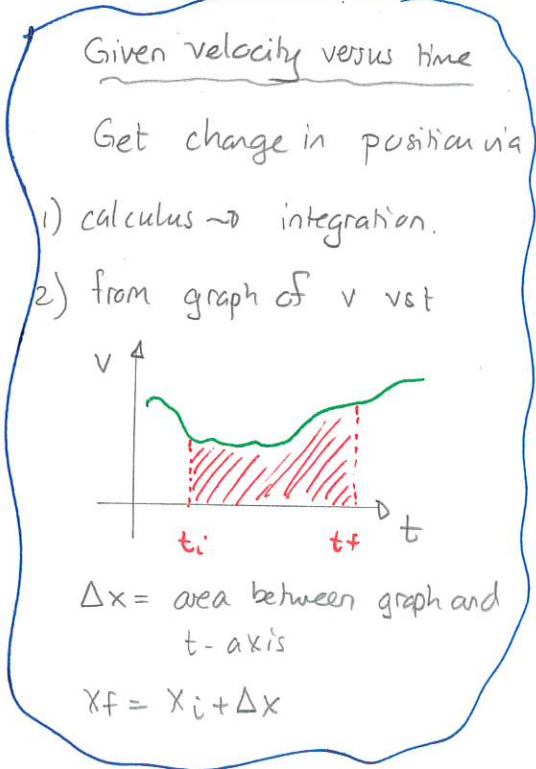 Given velocity versus time
Get change in position via
1) calculus → integration.
2) from graph of v vs t
v
t
ti
tf
Δx = area between graph and
t-axis
xf = xi + Δx